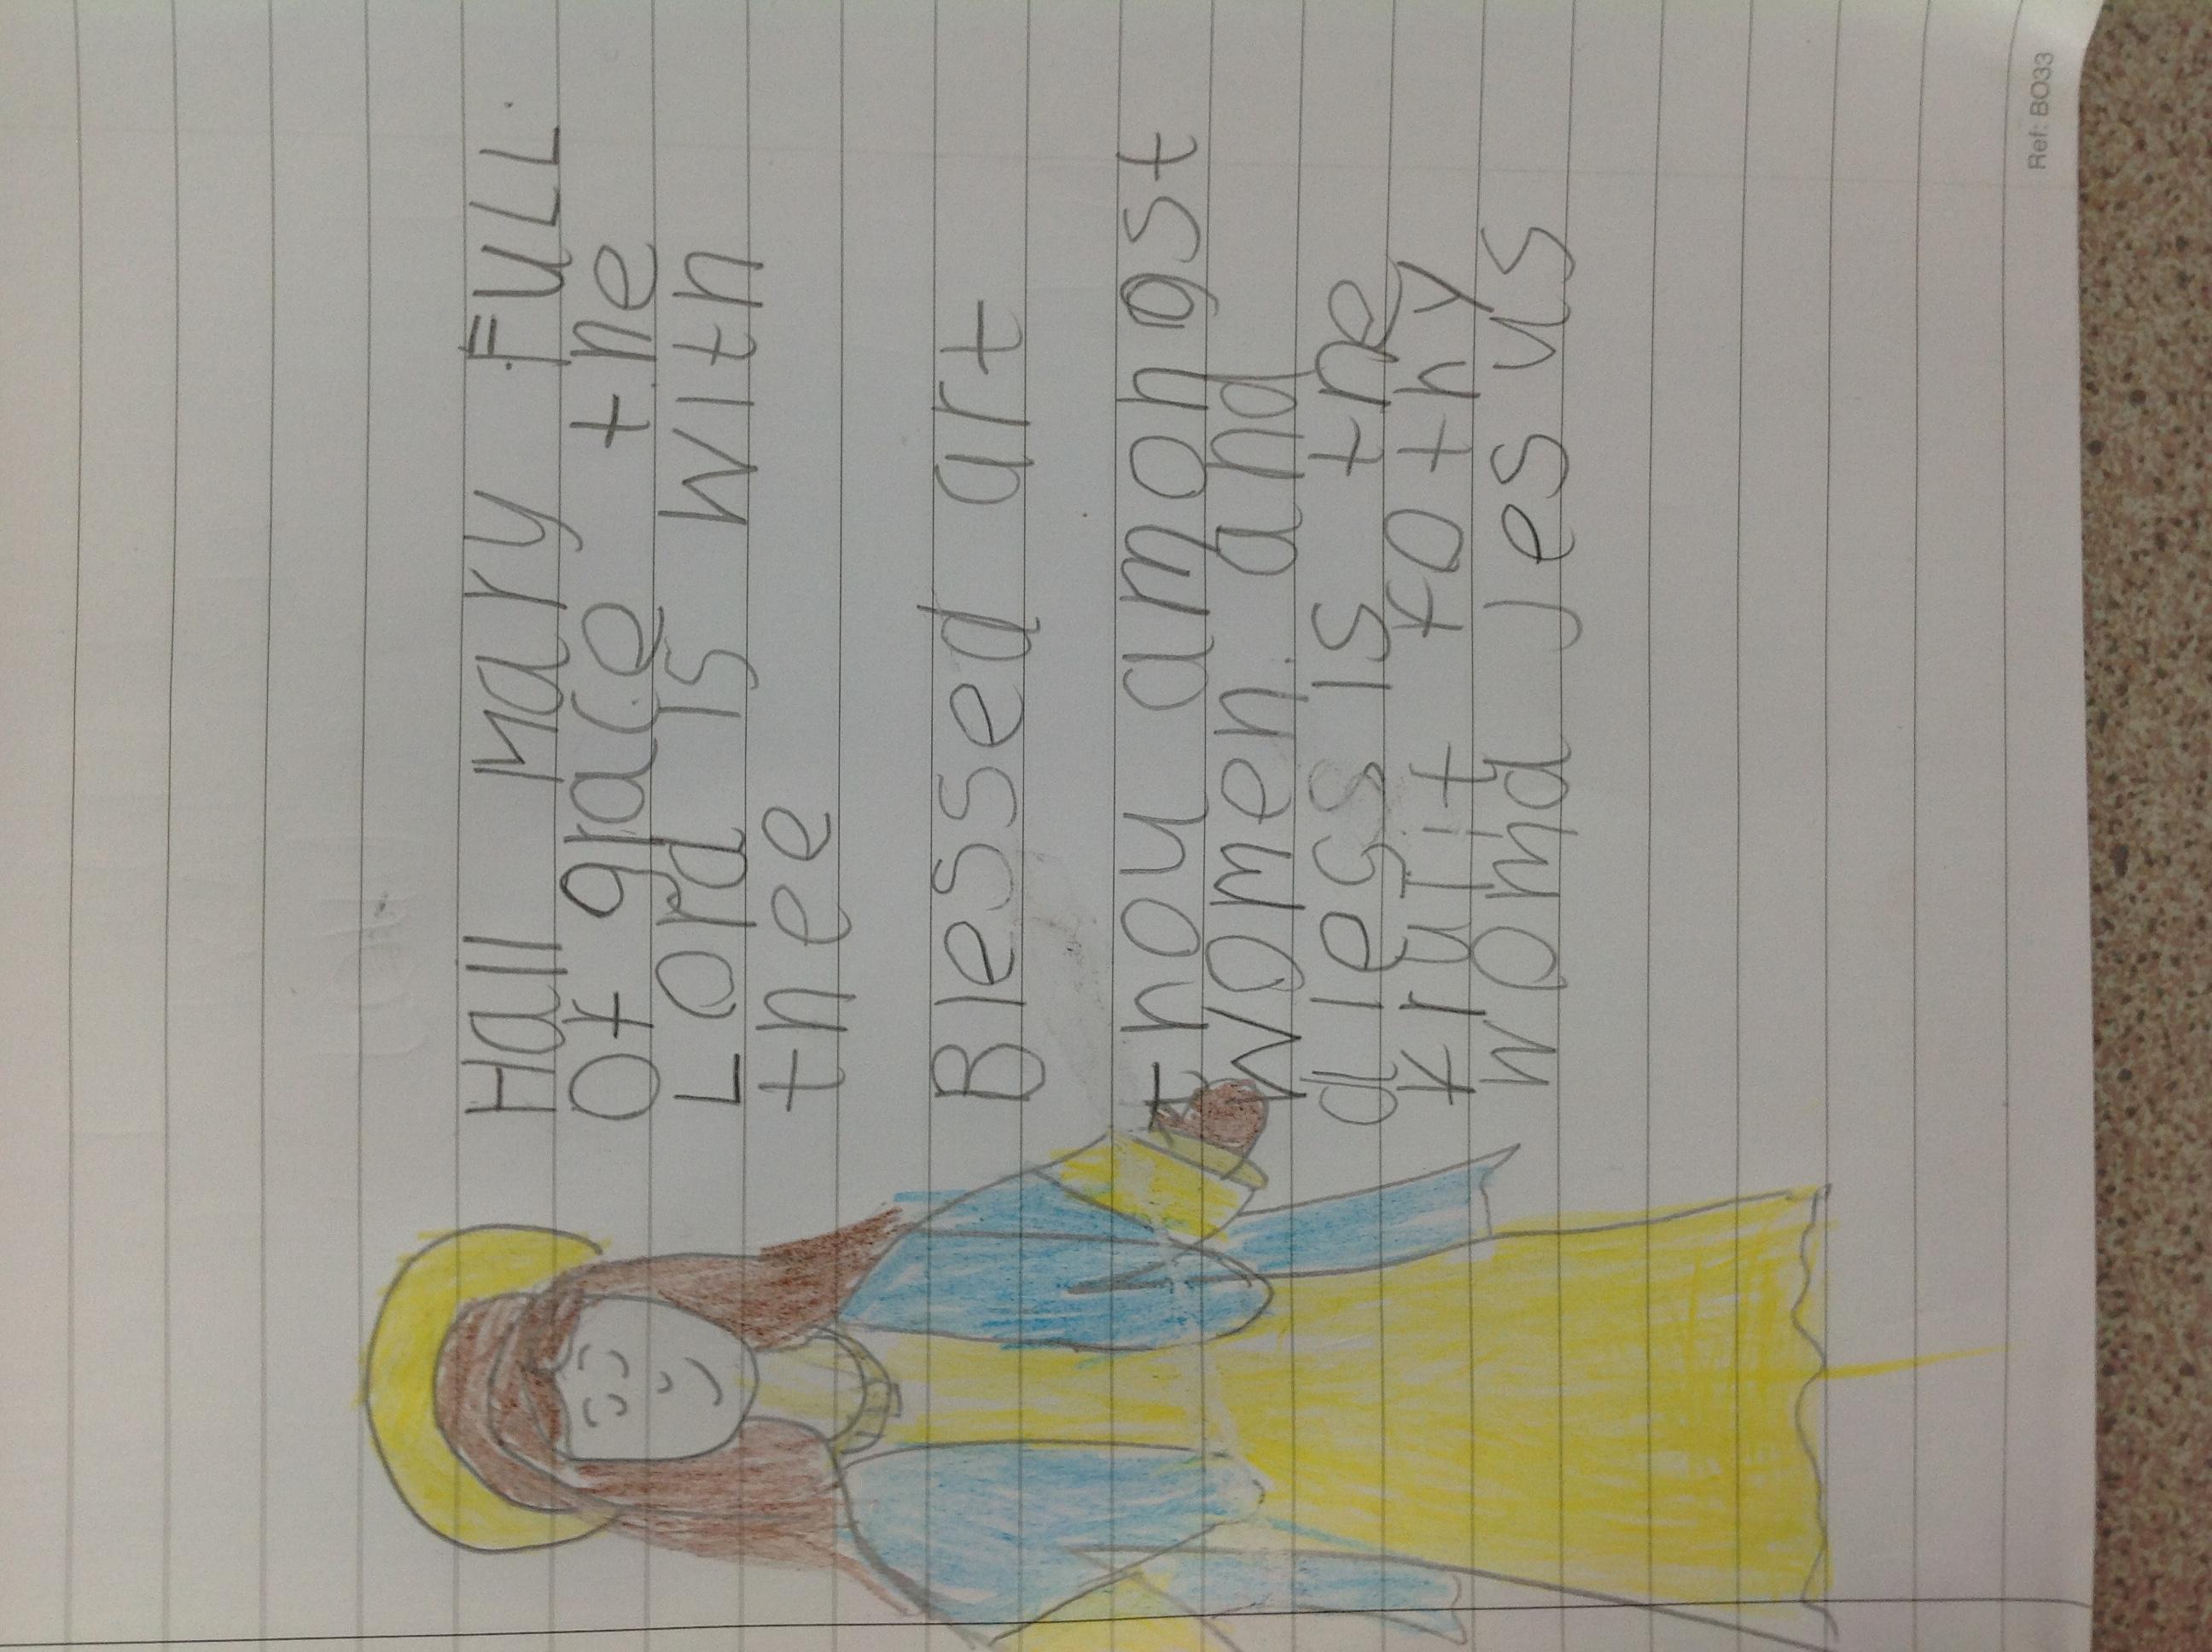 Hall Mary FULL
Of grace the
Lord is with
thee
Blessed art
thou amongst
Women and
dless is the
fruit fo thy
womd Jesus
Ref: BO33